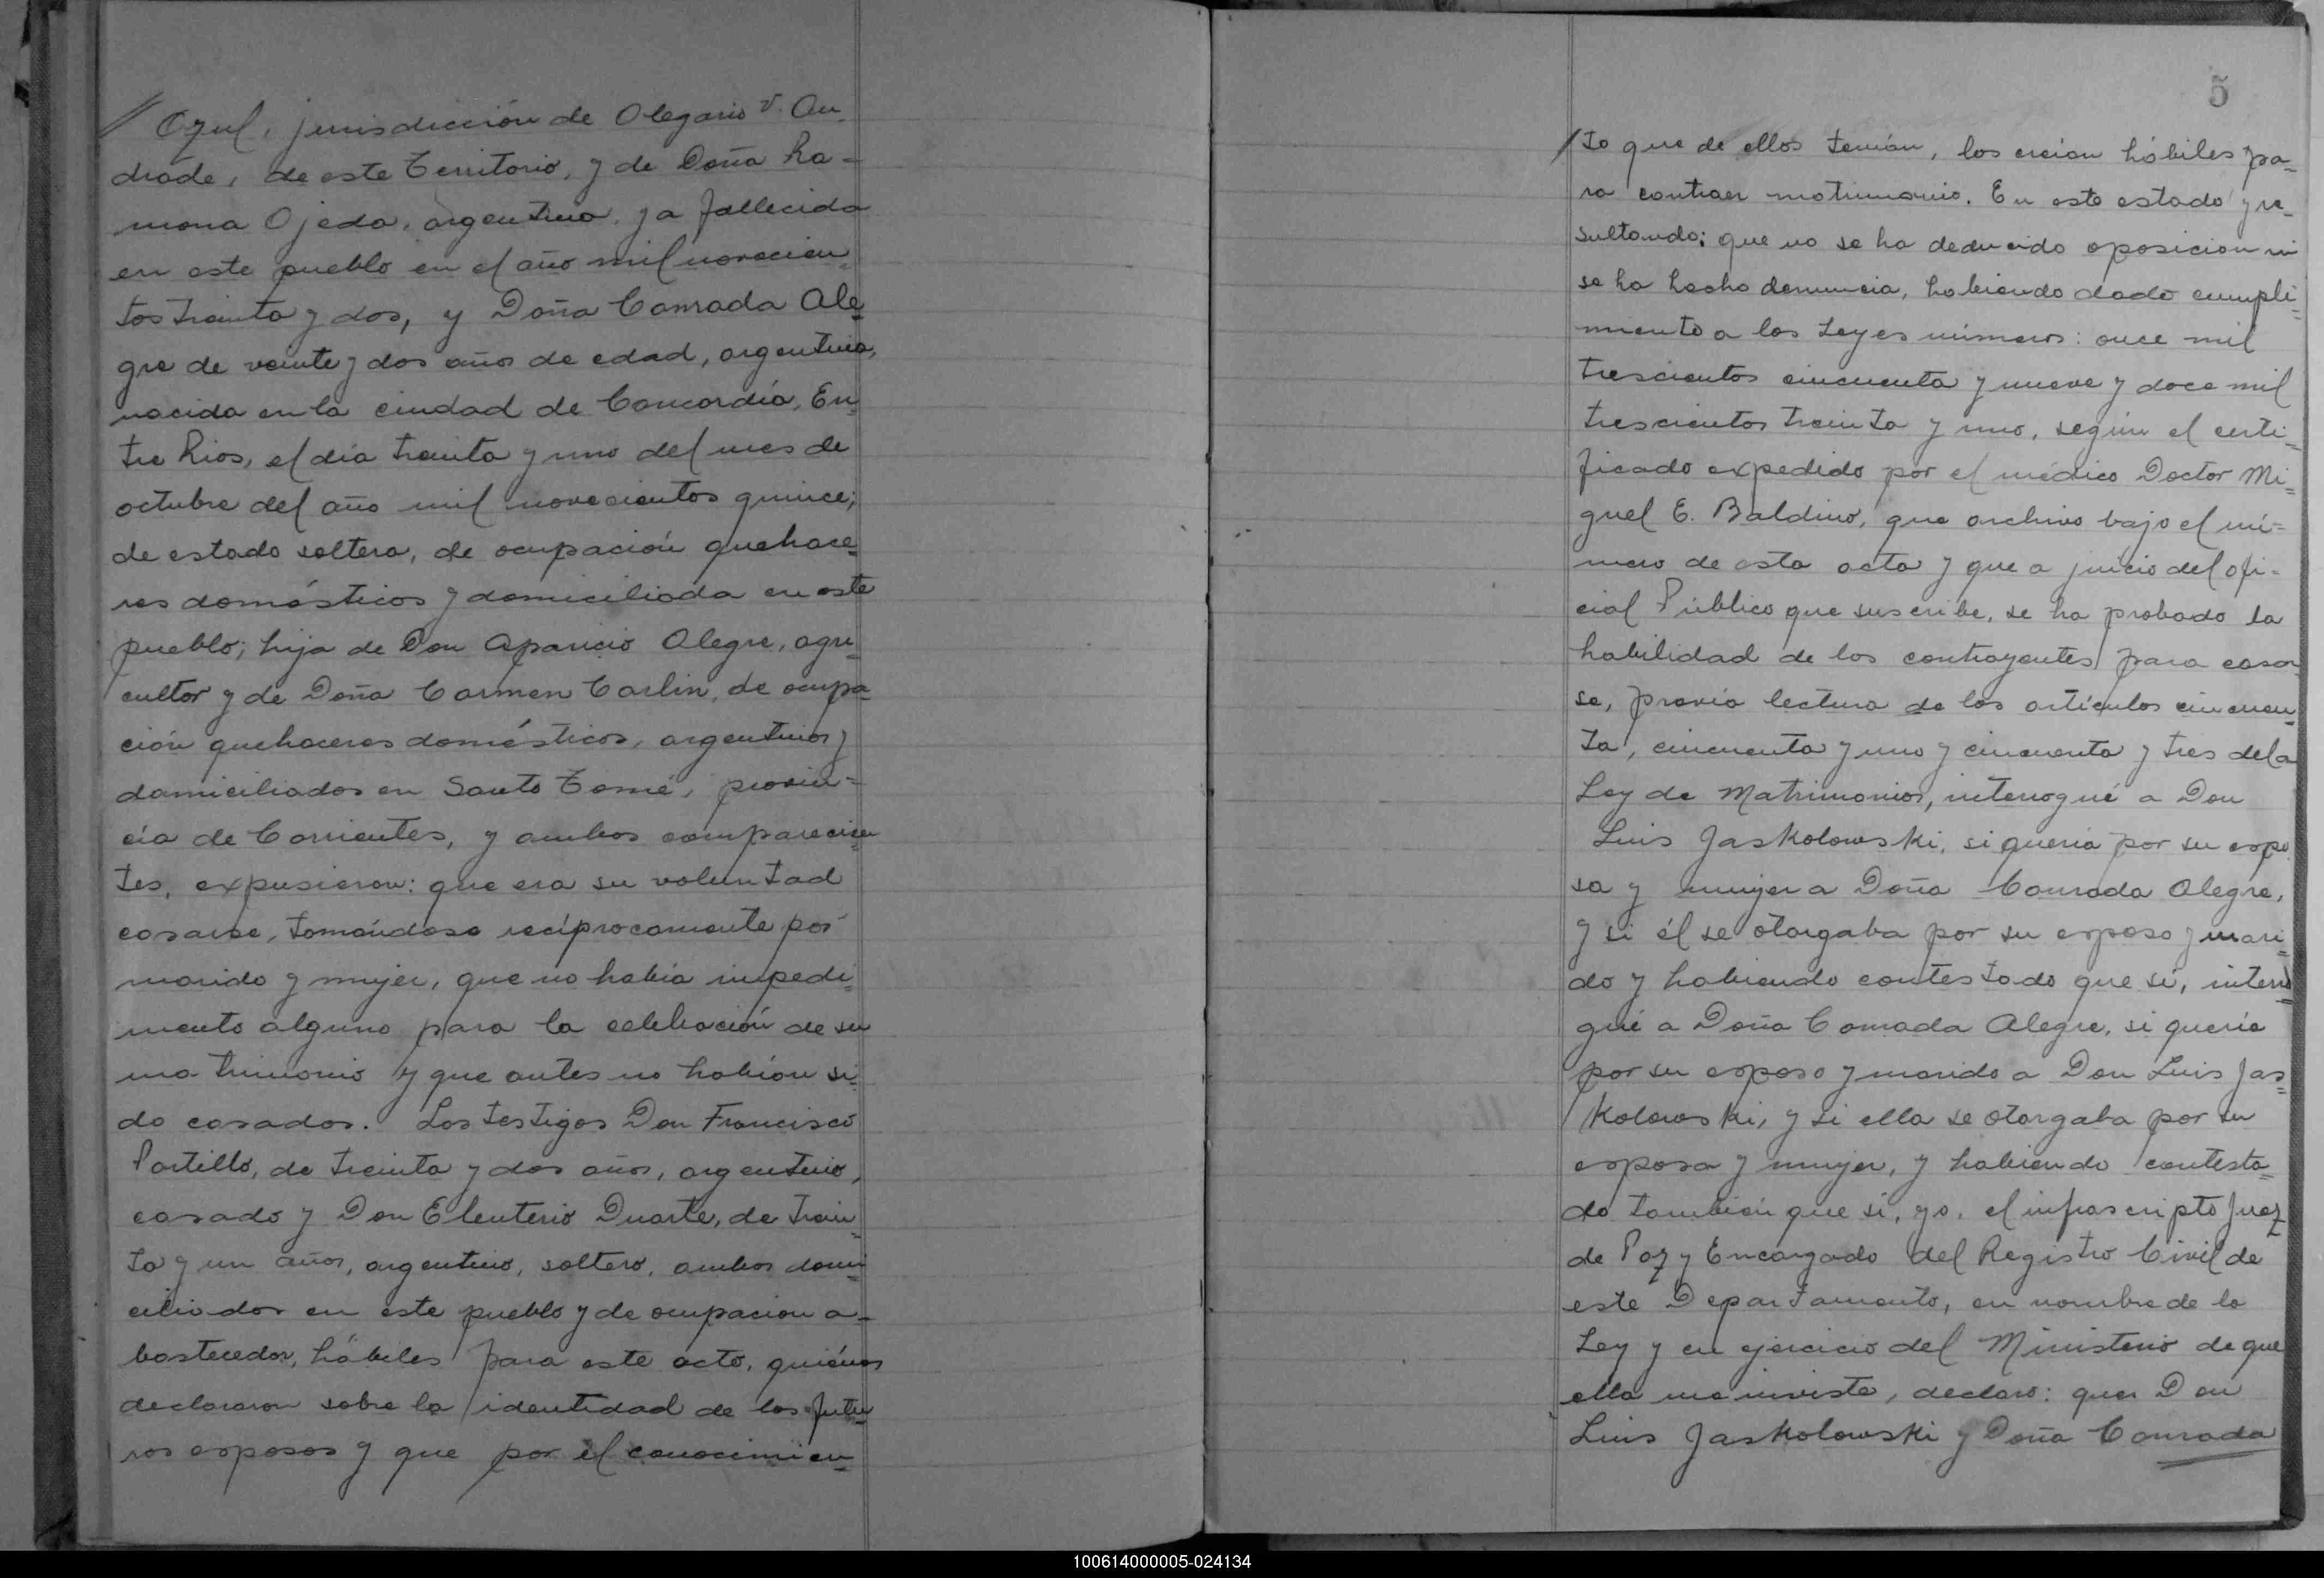 // Azul, jurisdicción de Olegario V. An-
drade, de este Territorio, y de Doña Ra-
mona Ojeda, argentina, ya fallecida
en este pueblo en el año mil novecien-
tos treinta y dos, y Doña Conrada Ale-
gre de veinte y dos años de edad, argentina,
nacida en la ciudad de Concordia, En-
tre Rios, el día treinta y uno del mes de
octubre del año mil novecientos quince;
de estado soltera, de ocupación quehace-
res domésticos y domiciliada en este
pueblo; hija de Don Aparicio Alegre, agri-
cultor y de Doña Carmen Carlin, de ocupa-
ción quehaceres domésticos, argentinos y
domiciliados en Santo Tomé, provin-
cia de Corrientes, y ambos comparecien-
tes, expusieron: que era su voluntad
casarse, tomándose recíprocamente por
marido y mujer, que no había impedi-
mento alguno para la celebración de su
matrimonio y que antes no habían si-
do casados. Los testigos Don Francisco
Portillo, de treinta y dos años, argentino,
casado y Don Eleuterio Duarte, de trein-
ta y un años, argentino, soltero, ambos domi-
ciliados en este pueblo y de ocupacion a-
bastecedor, hábiles para este acto, quiénes
declararon sobre la identidad de los futu-
ros esposos y que por el conocimien-
5
/ to que de ellos tenían, los creían hábiles pa-
ra contraer matrimonio. En este estado y re-
sultando: que no se ha deducido oposicion ni
se ha hecho denuncia, habiendo dado cumpli-
miento a las Leyes números: once mil
trescientos cincuenta y nueve y doce mil
trescientos treinta y uno, según el certi-
ficado expedido por el médico Doctor Mi-
guel E. Baldino, que archivo bajo el nú-
mero de esta acta y que a juicio del ofi-
cial Público que suscribe, se ha probado la
habilidad de los contrayentes para casar-
se, previa lectura de los artículos cincuen-
ta, cincuenta y uno y cincuenta y tres de la
Ley de Matrimonios, interrogué a Don
Luis Jaskolowski, si quería por su espo-
sa y mujer a Doña Conrada Alegre,
y si él se otorgaba por su esposo y mari-
do y habiendo contestado que sí, interro-
gué a Doña Conrada Alegre, si quería
por su esposo y marido a Don Luis Jas-
kolowski, y si ella se otorgaba por su
esposa y mujer, y habiendo contesta-
do también que sí, yo, el infrascripto Juez
de Paz y Encargado del Registro Civil de
este Departamento, en nombre de la
Ley y en ejercicio del Ministerio de que
ella me inviste, declaro: que Don
Luis Jaskolowski y Doña Conrada
100614000005-024134